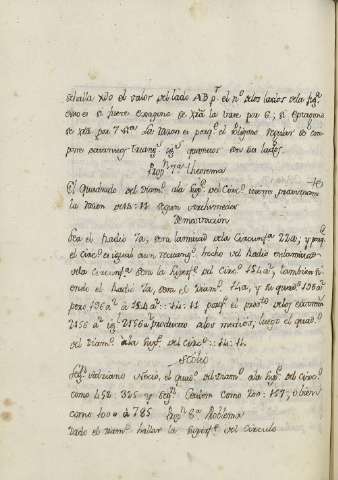 se halla xdo el valor del lado AB pr. el no. de los lados de la figa.
como si se fuere exagono se xtā. la vase por 6; si eptagono
se xta por 7 &a. La razon es porqe. el Poligono regular se com
pone de tantos triangs. yguales quantos son sus lados.
Propn. 7a. theorema
El Quadrado del Diamo. a la supe. del Circo. tiene proximamte.
la razon de 14: 11 segun Archimedes
Demostracion
Sea el Radio 7a, sera la mitad de la Circunfa. 22a, y porqe.
el circo. es igual a un rectango. hecho del Radio en la mitad
de la circunfa. sera la superfe. del circo. 154a, tambien si
endo el Radio 7a, sera el Diamo. 14a, y su quado. 196a
pero 196a : a 154a :: 14: 11 porqe. el prodto. de los extremos
2156a igl. 2156a producto de los medios, luego el quado.
del Diamo. a la supe. del circo. :: 14: 11.
Scolio
Segn. Adriano Mecio, el quado. del Diamo. a la supe. del Circo.
como 452: 355 y Segn. Ceulen como 200: 157; o bien
como 1000 a 785 Propn. 8a. Problema
Dado el Diamo. hallar la superfe. del circulo